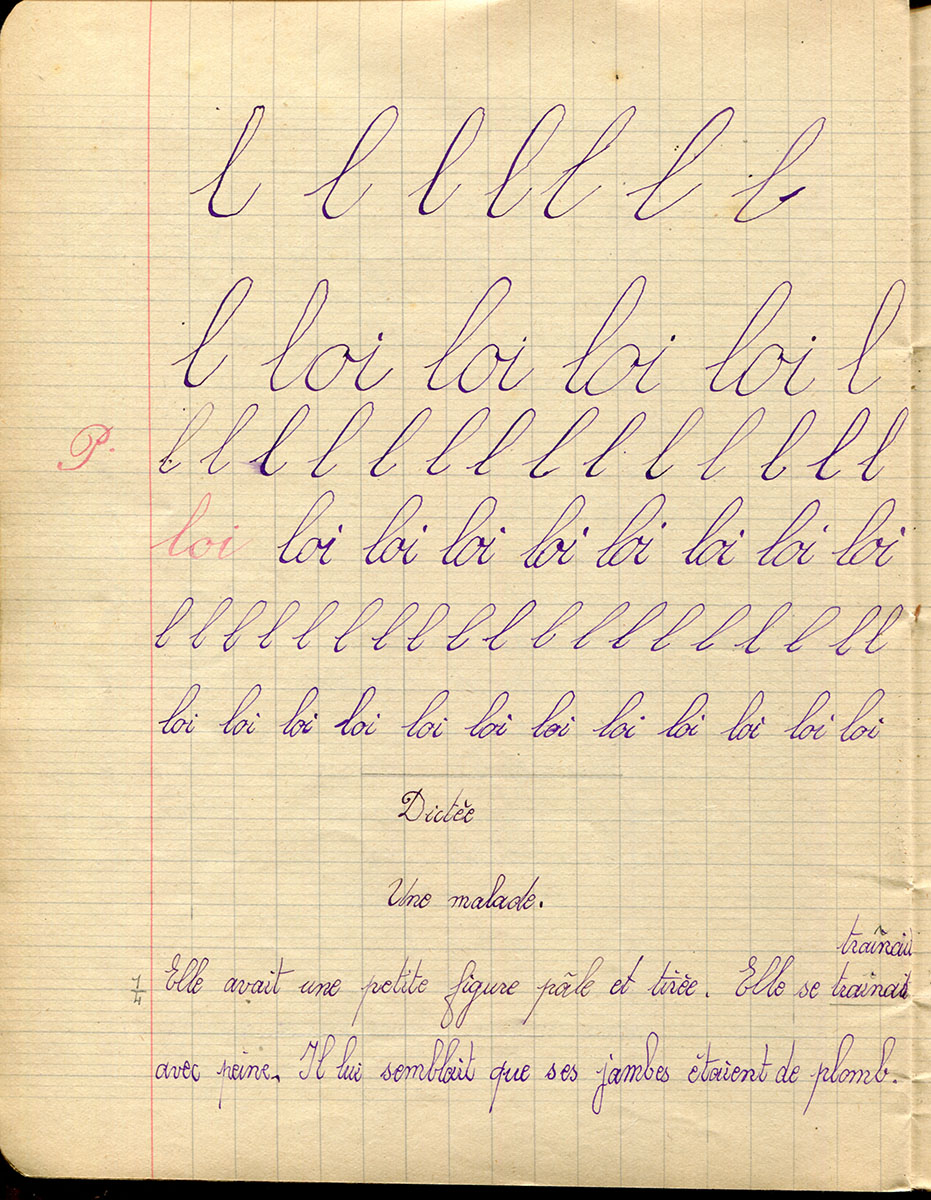 l l l l l l l
l loi loi loi loi l
P. l l l l l l l l l l l l l l
loi loi loi loi loi loi loi loi loi
l l l l l l l l l l l l l l l l l l l
loi loi loi loi loi loi loi loi loi loi loi loi
Dictée
Une malade.
traînait
1/4 Elle avait une petite figure pâle et tirée. Elle se trainait
avec peine. Il lui semblait que ses jambes étaient de plomb.